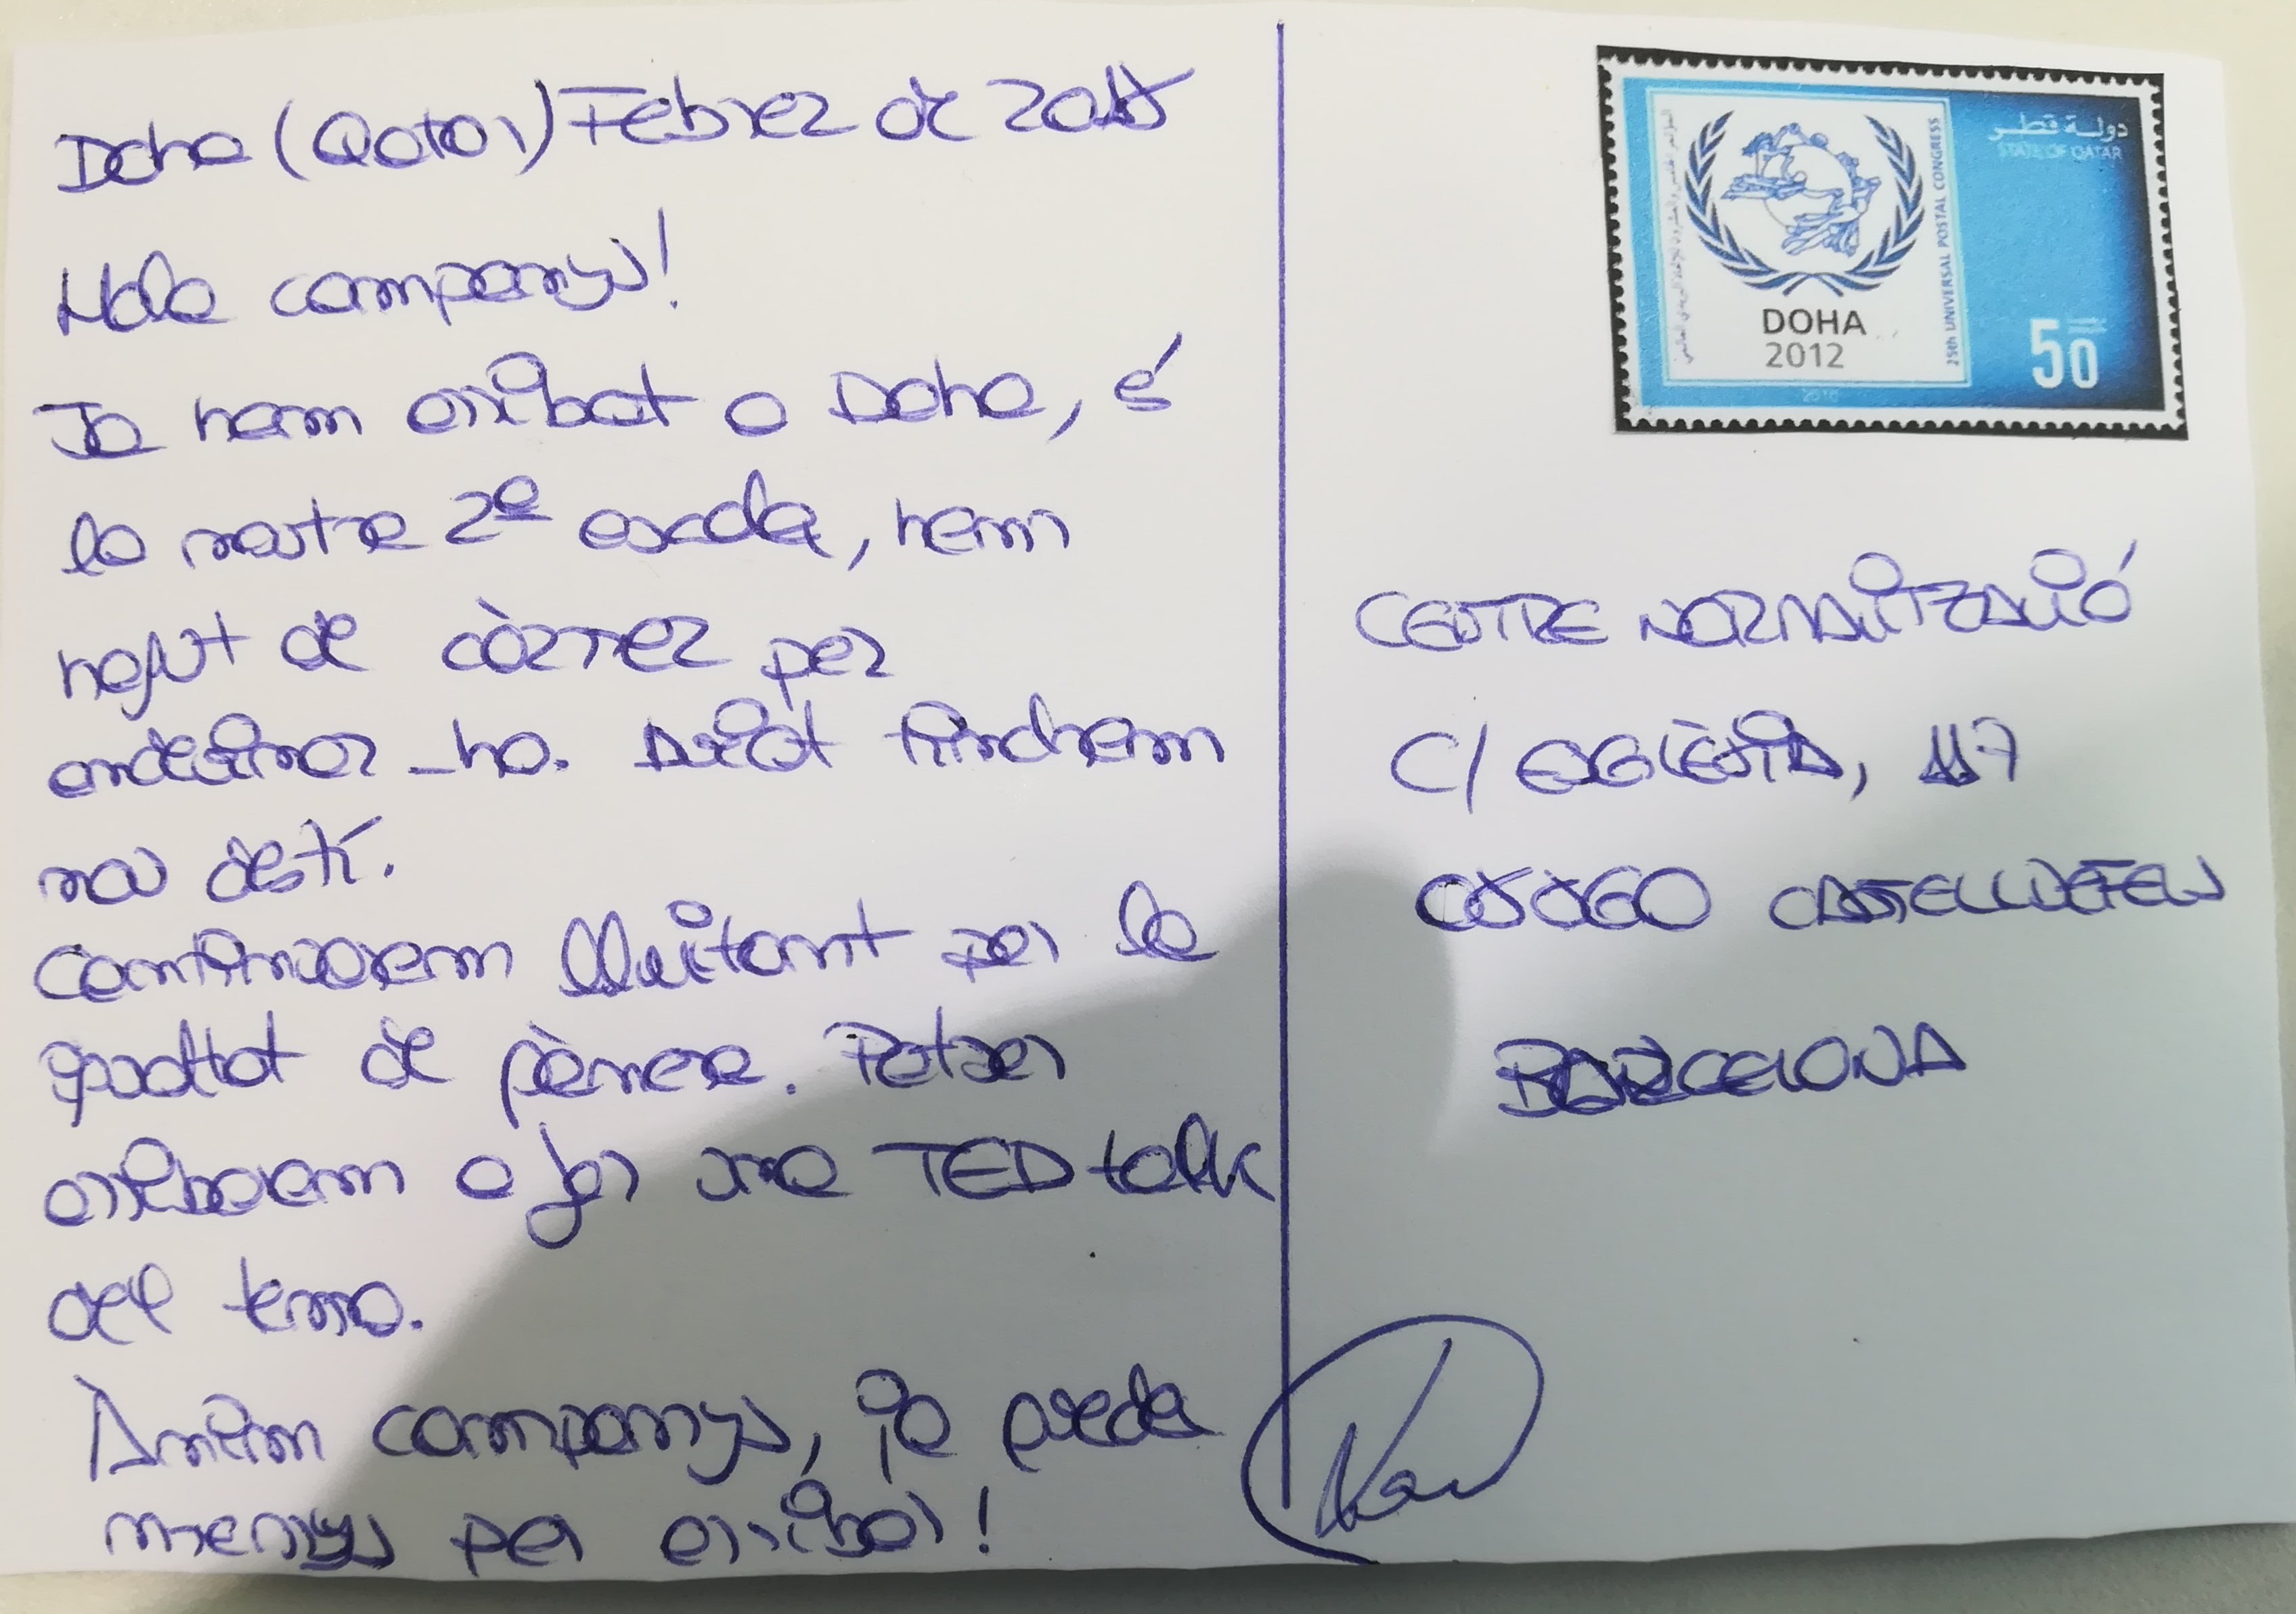 Doha (Qatar) Febrer de 2018
Hola companys!
Ja hem arribat a Doha, és
la nostre 2ª escola, hem
hagut de córrer per
endevinar-ho. Aviat tindrem
nou destí.
Continuarem lluitant per la
igualtat de gènere. Potser
arribarem a fer una TED talk
del tema.
Ànim companys, ja queda
menys per arribar!
دولة قطر
STATE OF QATAR
25th UNIVERSAL POSTAL CONGRESS
DOHA
2012
50
2010
CENTRE NORMALITZACIÓ
C/ ESGLÈSIA, 117
08860 CASTELLDEFELS
BARCELONA